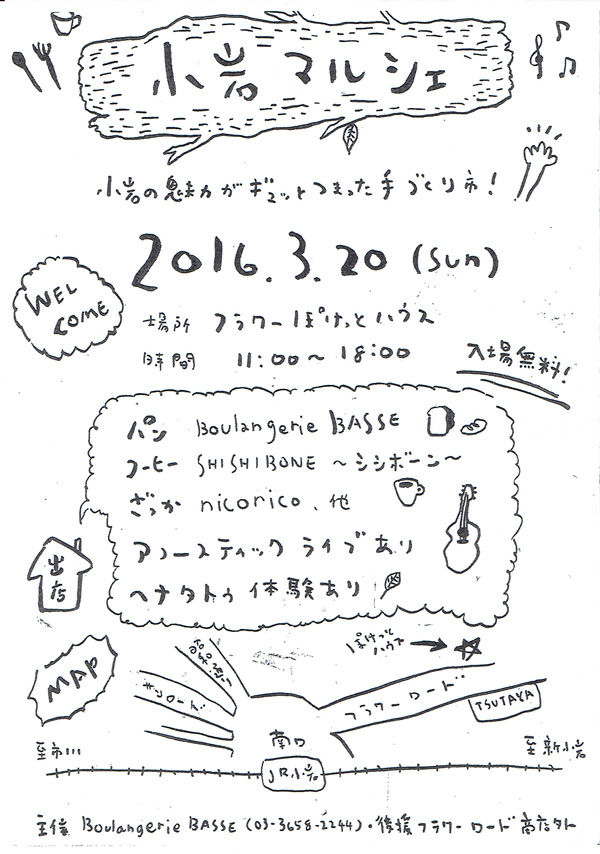 小岩マルシェ
小岩の魅力がギュッとつまった手づくり市!
2016.3.20 (Sun)
WEL
COME
場所 フラワーぽけっとハウス
時間 11:00〜18:00
入場無料!
パン Boulangerie BASSE
コーヒー SHISHIBONE 〜シシボーン〜
ざっか nicorico、他
アコースティック ライブあり
ヘナタトゥ体験あり
出店
MAP
昭和通り
サンロード
ぽけっと
ハウス
フラワーロード
TSUTAYA
南口
至市川
至新小岩
JR小岩
主催 Boulangerie BASSE (03-3658-2244)・後援 フラワーロード商店